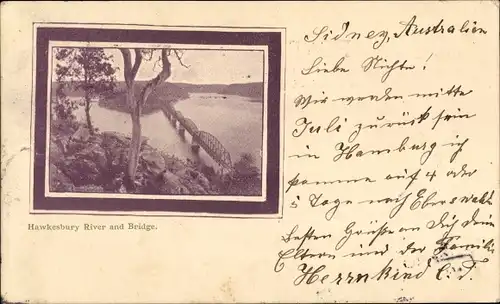 Sidney, Australien
Liebe Nichte!
Wir werden mitte
Juli zurück sein
in Hamburg ich
komme auf 4 oder
5 Tage nach Eberswald.
besten Grüße an Dich dein
Eltern und der Familie
Herrnkind C. T.
Hawkesbury River and Bridge.